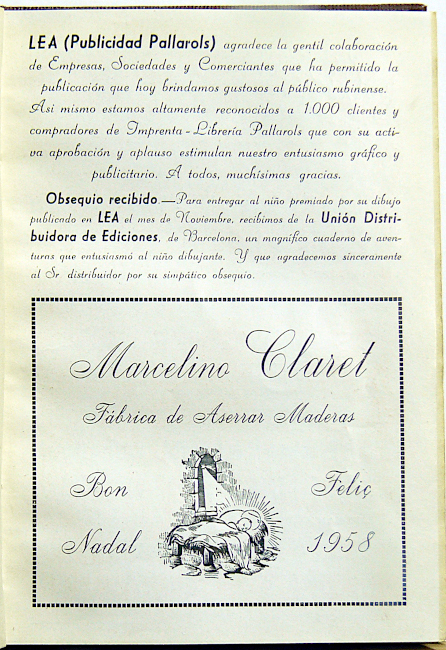 LEA (Publicidad Pallarols) agradece la gentil colaboración
de Empresas, Sociedades y Comerciantes que ha permitido la
publicación que hoy brindamos gustosos al público rubinense.
Asi mismo estamos altamente reconocidos a 1.000 clientes y
compradores de Imprenta - Librería Pallarols que con su acti-
va aprobación y aplauso estimulan nuestro entusiasmo gráfico y
publicitario. A todos, muchísimas gracias.
Obsequio recibido.—Para entregar al niño premiado por su dibujo
publicado en LEA el mes de Noviembre, recibimos de la Unión Distri-
buidora de Ediciones, de Barcelona, un magnífico cuaderno de aven-
turas que entusiasmó al niño dibujante. Y que agradecemos sinceramente
al Sr. distribuidor por su simpático obsequio.
Marcelino Claret
Fábrica de Aserrar Maderas
Bon Feliç
Nadal 1958